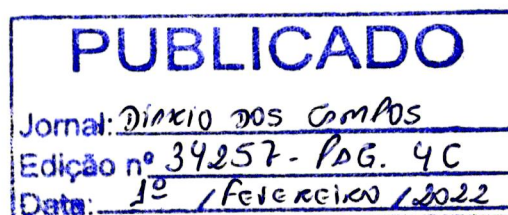 PUBLICADO
Jornal: DIÁRIO DOS CAMPOS
Edição nº 34257 - PÁG. 4C
Data: 1º / FEVEREIRO / 2022